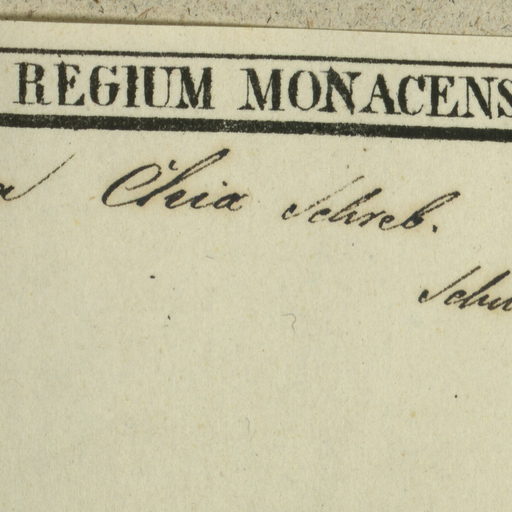 REGIUM MONACENS
a Chia Schreb.
Schu